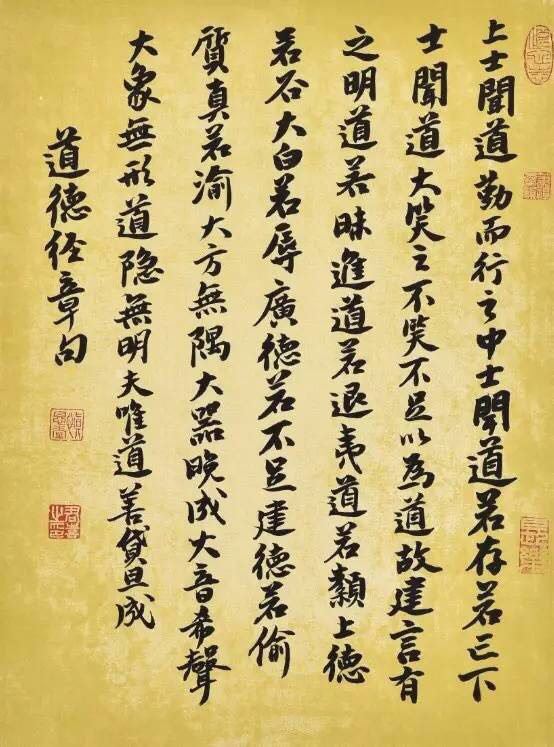 上士聞道勤而行之中士聞道若存若亡下
士聞道大笑之不笑不足以為道故建言有
之明道若昧進道若退夷道若纇上德
若谷大白若辱廣德若不足建德若偷
質真若渝大方無隅大器晚成大音希聲
大象無形道隐無明夫唯道善貸且成
道德经章句